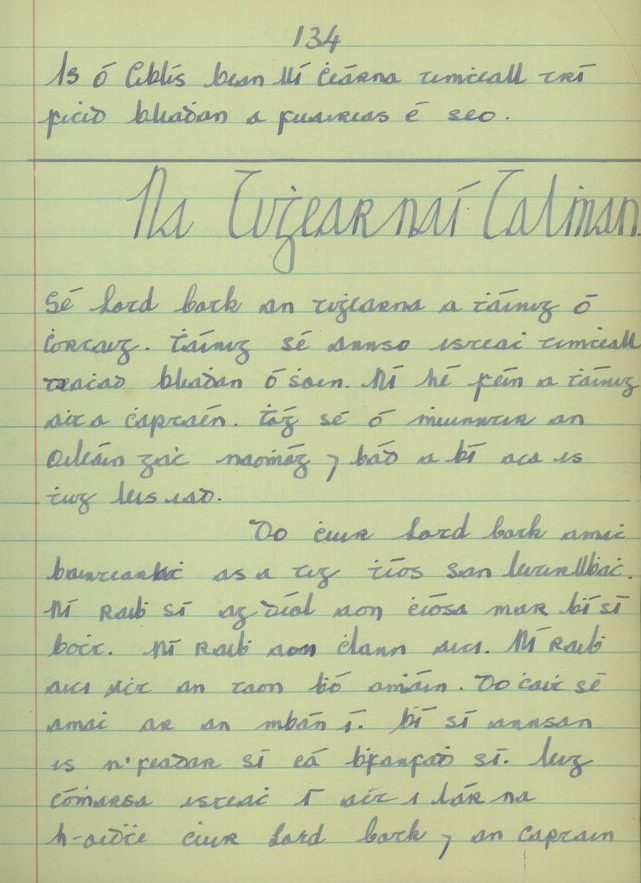 134
Is ó Eiblís bean Uí Ċeárna timċeall trí
fiċid bliadan a fuaireas é seo.
Na Tiġearnaí Talṁan
Sé Lord Cork an tiġearna a ṫáinig ó
Ċorcaig. Ṫáinig sé annso isteaċ timċeall
traċad bliadan ó ṡoin. Ní hé féin a ṫáinig
aċt a ċaptaén. Ṫóg sé ó ṁuinntir an
Oileáin gaċ naoṁóg ⁊ bád a bí aca is
ṫug leis iad.
Do ċuir Lord Cork amaċ
baintreaḃaċ as a tig ṫíos san Leitriuċ.
Ní raiḃ sí ag díol aon ċíosa mar bí sí
boċt. Ní raiḃ aon ċlann aici. Ní raiḃ
aici aċt an t-aon ḃó aṁáin. Do ċaiṫ sé
amaċ ar an mbán í. Ḃí sí annsan
is n' feadar sí cá ḃfanfaḋ sí. Leig
cóṁarsa isteaċ í aċt i lár na
h-oiḋċe ċuir Lord Cork ⁊ an captain